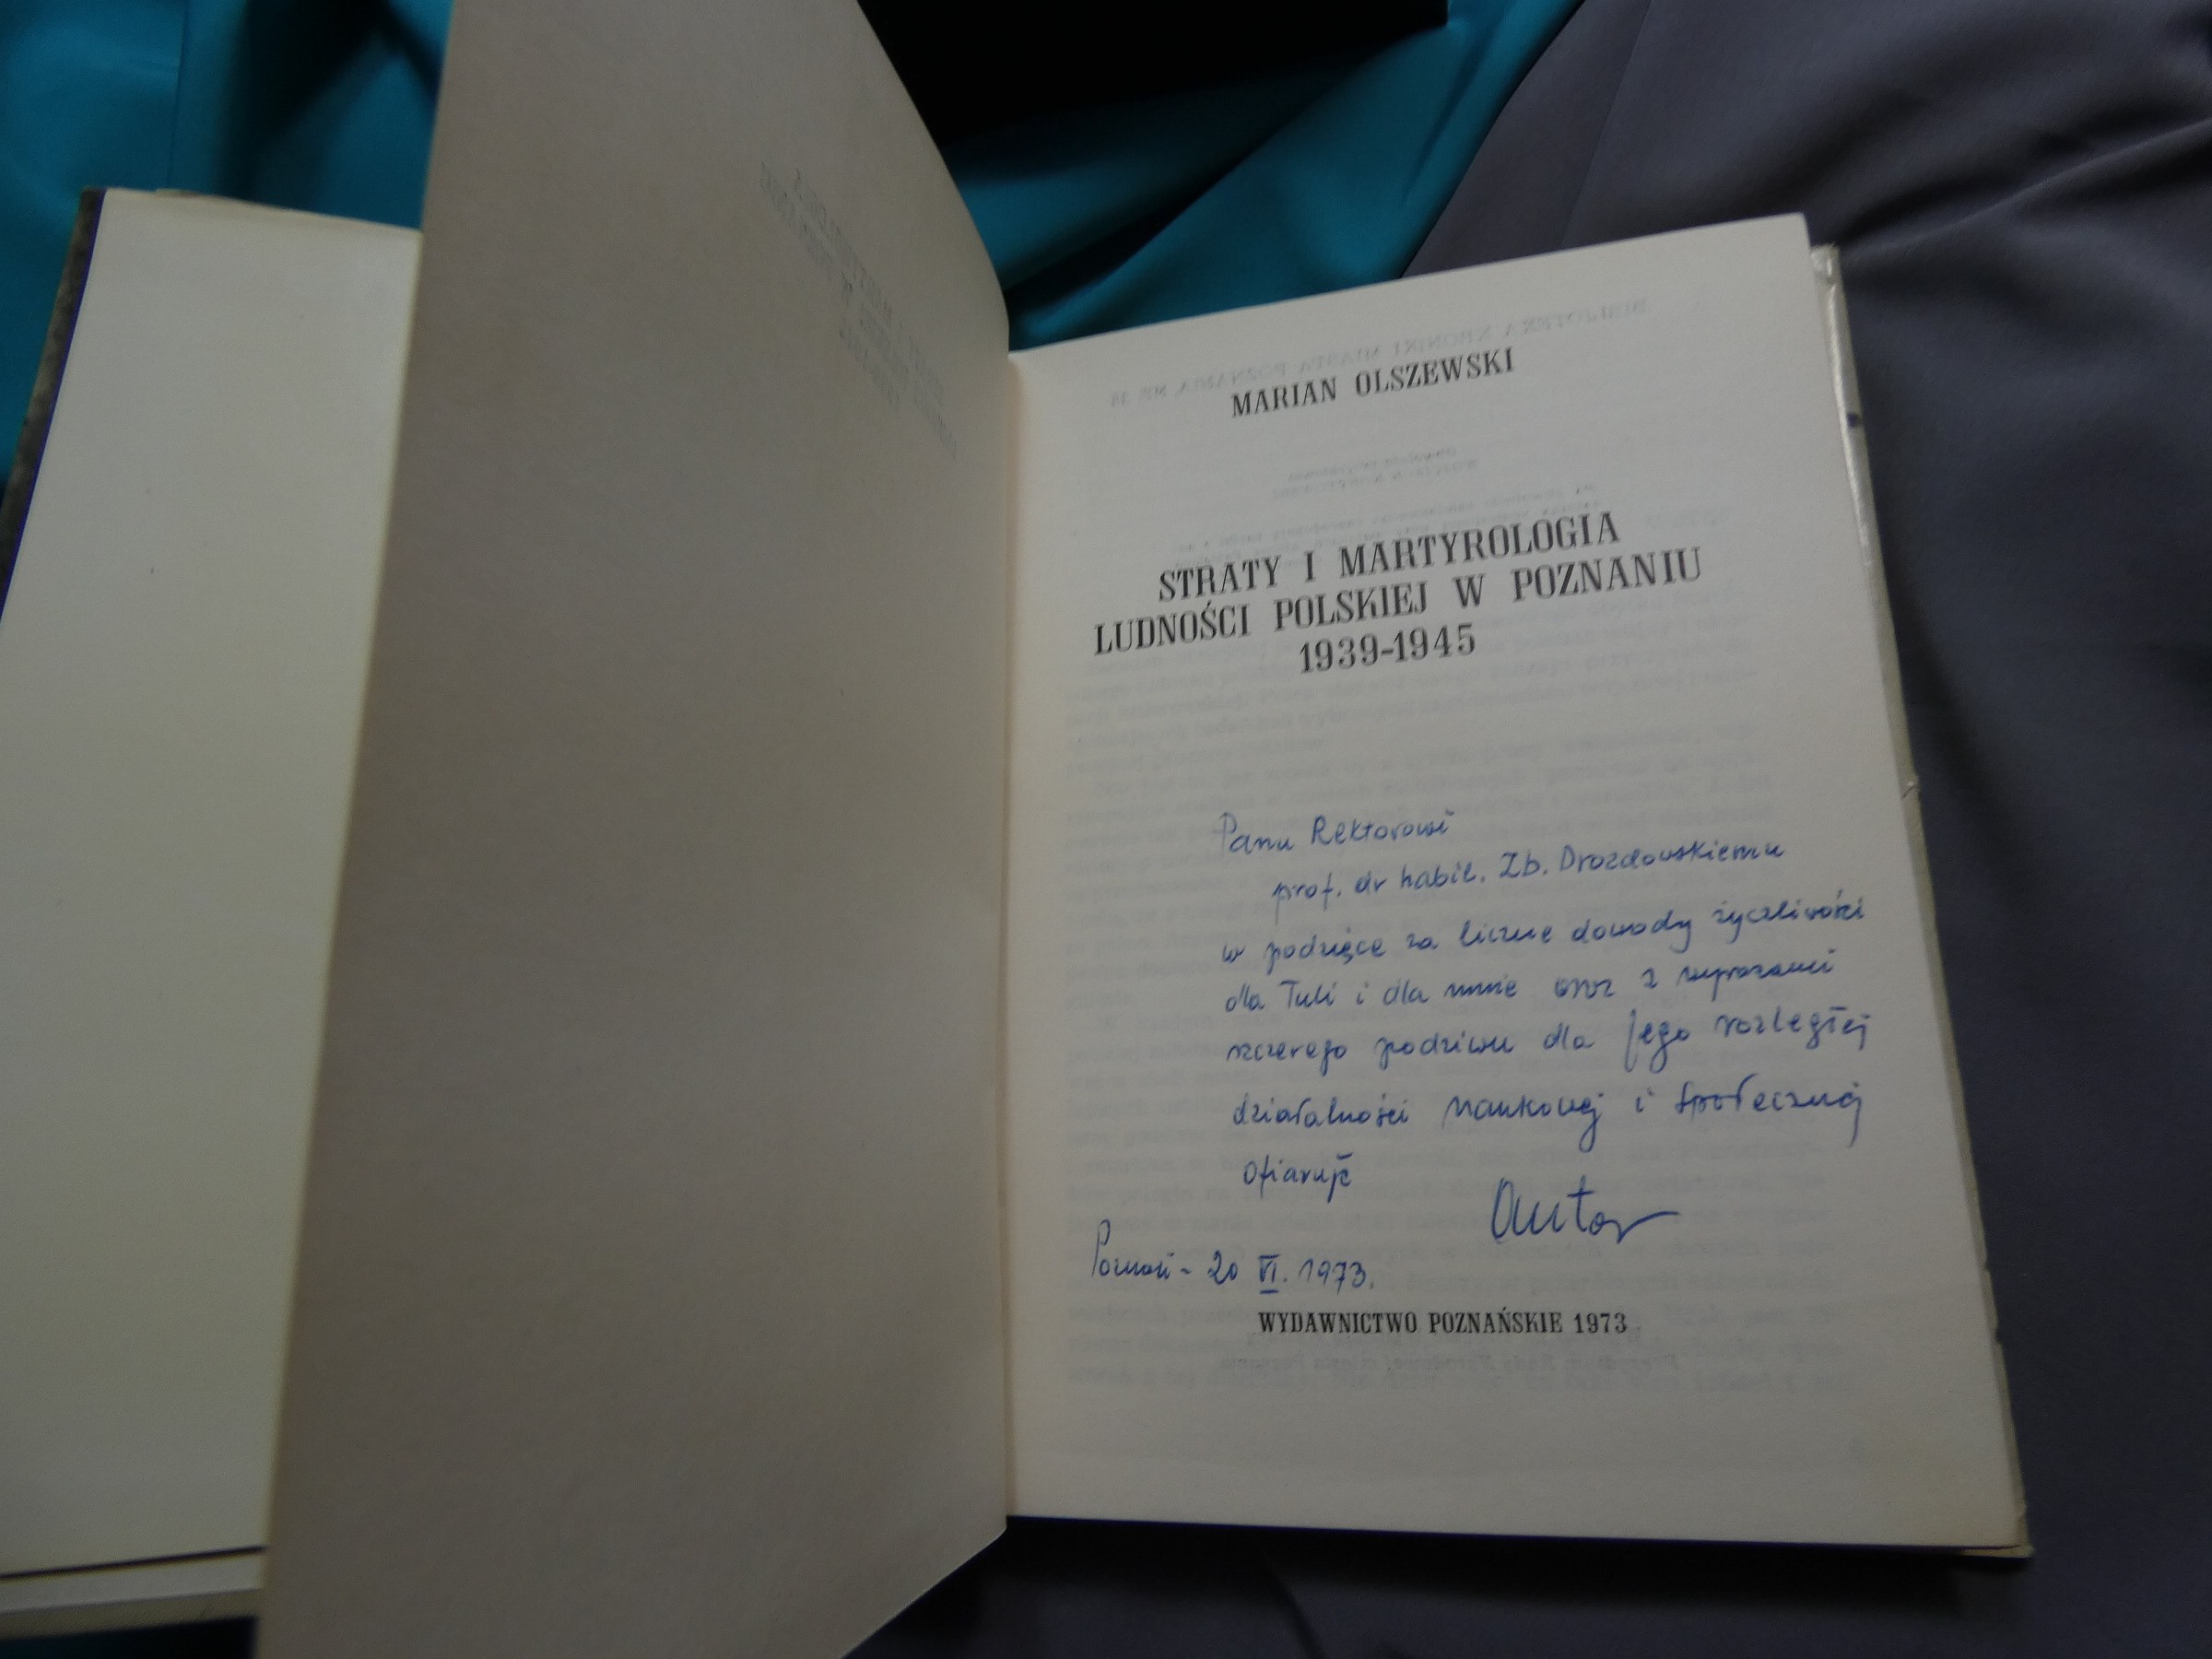 MARIAN OLSZEWSKI
STRATY I MARTYROLOGIA
LUDNOŚCI POLSKIEJ W POZNANIU
1939-1945
Panu Rektorowi
prof. dr habil. Zb. Drozdowskiemu
w podzięce za liczne dowody życzliwości
dla Tuli i dla mnie oraz z wyrazami
szczerego podziwu dla Jego rozległej
działalności naukowej i społecznej
Ofiaruję
Autor
Poznań - 20 VI. 1973.
WYDAWNICTWO POZNAŃSKIE 1973